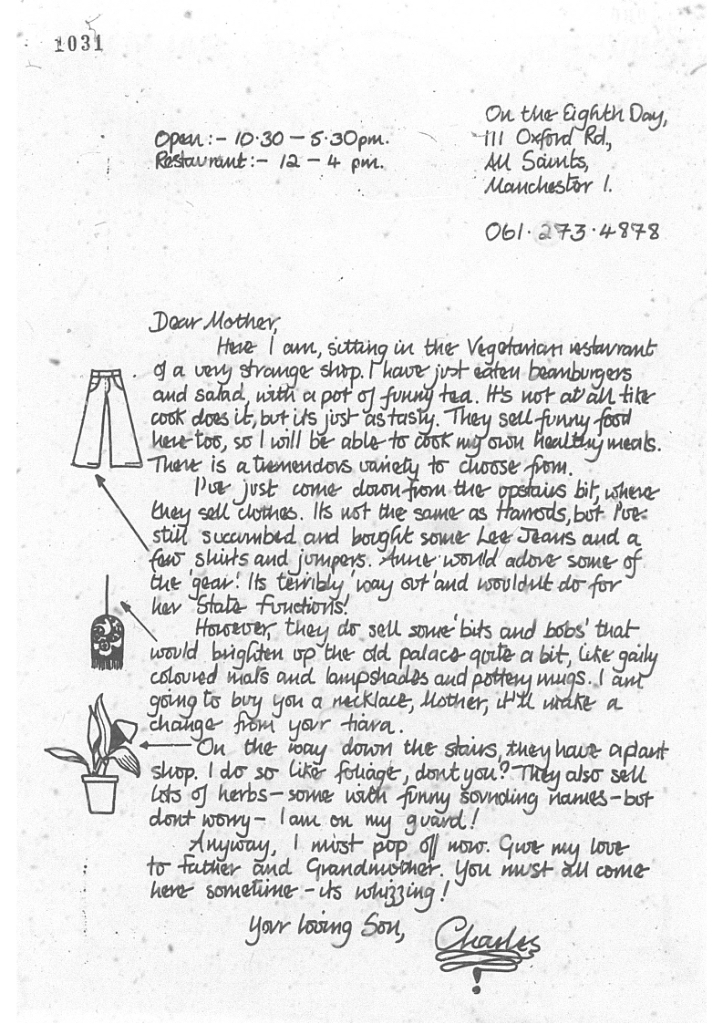 1031
Open:- 10·30 – 5·30pm.
Restaurant:- 12 – 4 pm.
On the Eighth Day,
111 Oxford Rd.,
All Saints,
Manchester 1.
061·273·4878
Dear Mother,
Here I am, sitting in the Vegetarian restaurant
of a very strange shop. I have just eaten beanburgers
and salad, with a pot of funny tea. It's not at all like
cook does it, but its just as tasty. They sell funny food
here too, so I will be able to cook my own healthy meals.
There is a tremendous variety to choose from.
I've just come down from the upstairs bit, where
they sell clothes. Its not the same as Harrods, but I've
still succumbed and bought some Lee Jeans and a
few shirts and jumpers. Anne would adore some of
the 'gear'. Its terribly 'way out' and wouldn't do for
her State Functions!
However, they do sell some 'bits and bobs' that
would brighten up the old palace quite a bit, like gaily
coloured mats and lampshades and pottery mugs. I am
going to buy you a necklace, Mother, it'll make a
change from your tiara.
On the way down the stairs, they have a plant
shop. I do so like foliage, dont you? They also sell
lots of herbs – some with funny sounding names – but
dont worry – I am on my guard!
Anyway, I must pop off now. Give my love
to Father and Grandmother. You must all come
here sometime – its whizzing!
Your loving Son,
Charles
!